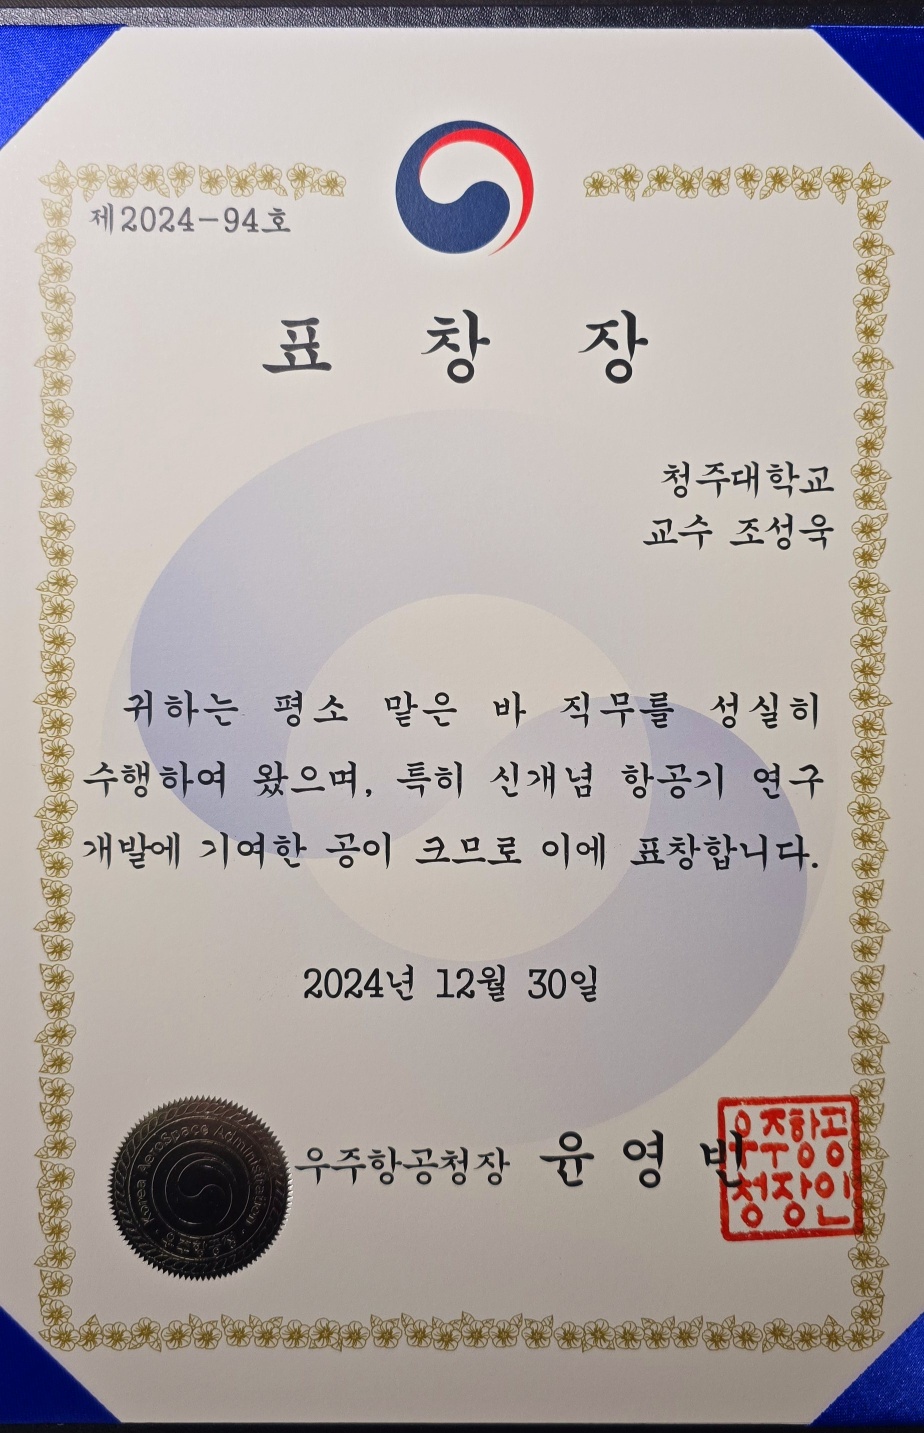 제2024-94호
표 창 장
청주대학교
교수 조성욱
귀하는 평소 맡은 바 직무를 성실히
수행하여 왔으며, 특히 신개념 항공기 연구
개발에 기여한 공이 크므로 이에 표창합니다.
2024년 12월 30일
Korea AeroSpace Administration
우주항공청
우주항공청장 윤 영 빈
우주항공
청장인